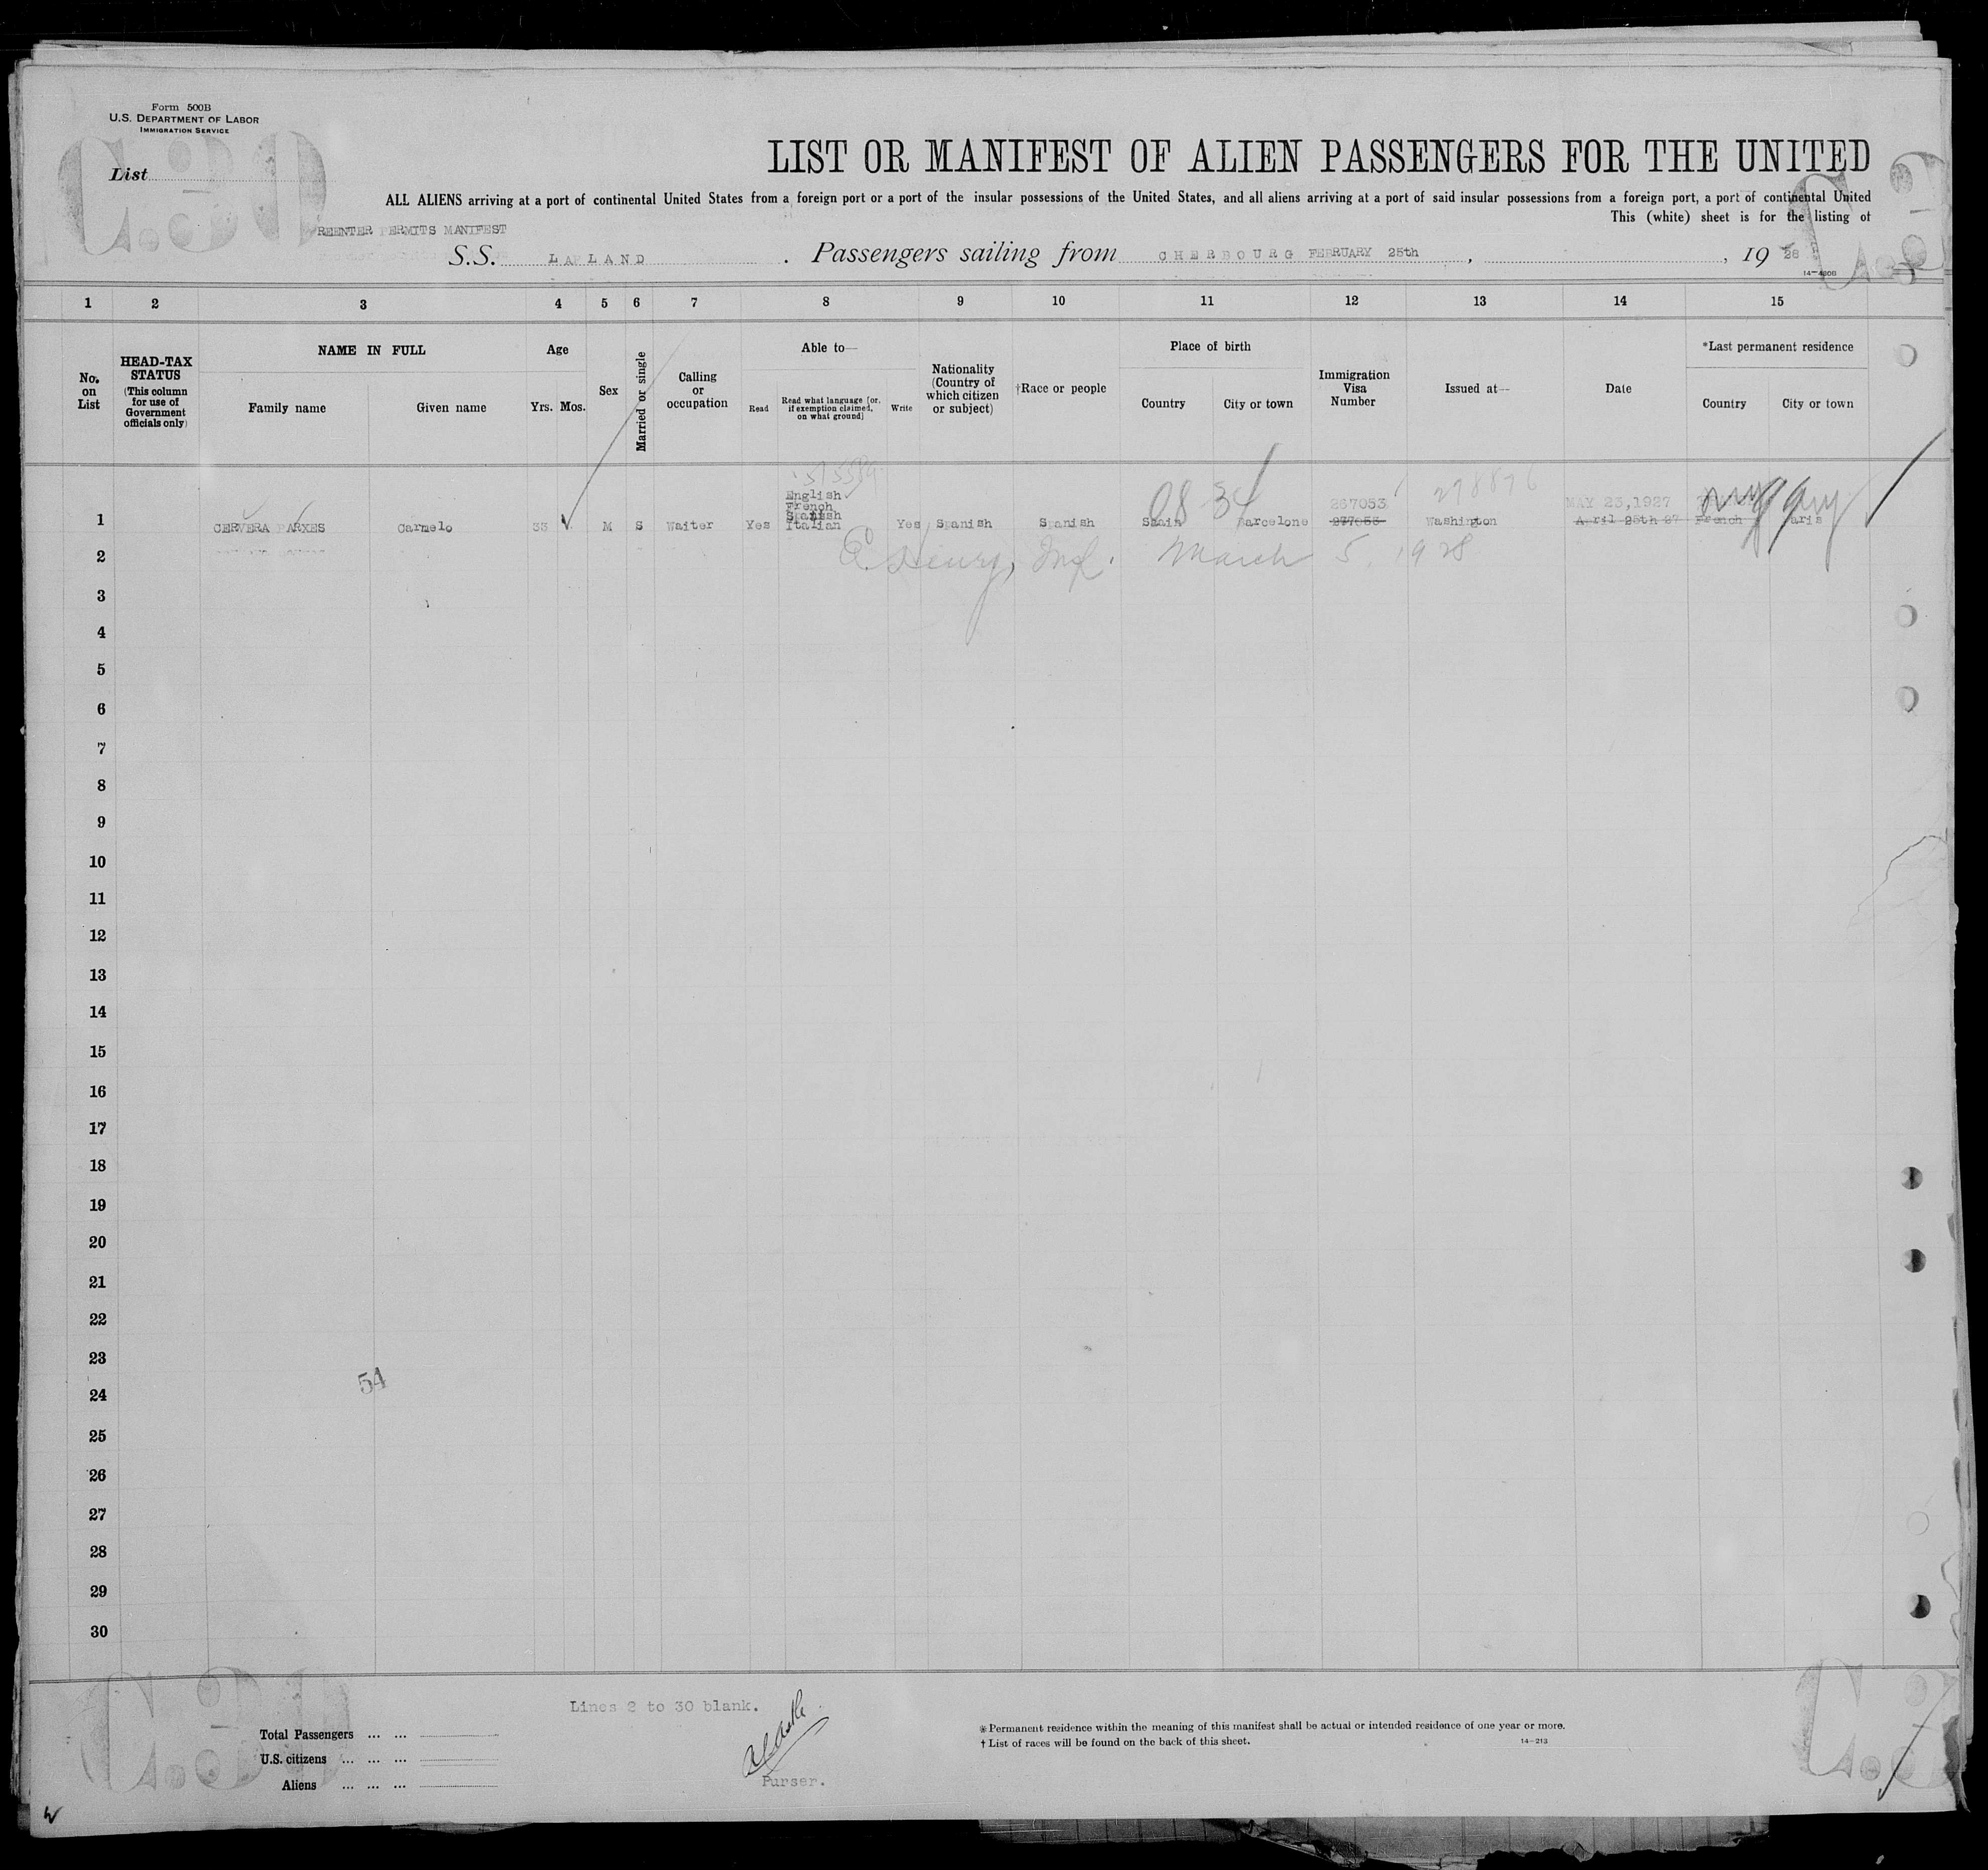 Form 500B
U.S. DEPARTMENT OF LABOR
IMMIGRATION SERVICE
List
LIST OR MANIFEST OF ALIEN PASSENGERS FOR THE UNITED
ALL ALIENS arriving at a port of continental United States from a foreign port or a port of the insular possessions of the United States, and all aliens arriving at a port of said insular possessions from a foreign port, a port of continental United
This (white) sheet is for the listing of
REENTER PERMITS MANIFEST
S.S. LAPLAND . Passengers sailing from CHERBOURG FEBRUARY 25th , , 19 28
14-4206
1 2 3 4 5 6 7 8 9 10 11 12 13 14 15
No. on List
HEAD-TAX STATUS (This column for use of Government officials only)
NAME IN FULL
Family name Given name
Age
Yrs. Mos.
Sex
Married or single
Calling or occupation
Able to—
Read Read what language [or, if exemption claimed, on what ground] Write
Nationality (Country of which citizen or subject)
†Race or people
Place of birth
Country City or town
Immigration Visa Number
Issued at—
Date
*Last permanent residence
Country City or town
298896
English
French
Spanish
08 34 267053 MAY 23,1927 ny
1 CERVERA PARXES Carmelo 33 M S Waiter Yes Italian Yes Spanish Spanish Spain Barcelone 277053 Washington April 25th 27 French Paris
2 March 5, 1928
3
4
5
6
7
8
9
10
11
12
13
14
15
16
17
18
19
20
21
22
23
54
24
25
26
27
28
29
30
Lines 2 to 30 blank.
Total Passengers ... ...
U.S. citizens ... ... ...
Aliens ... ... ...
Purser.
*Permanent residence within the meaning of this manifest shall be actual or intended residence of one year or more.
† List of races will be found on the back of this sheet.
14-213